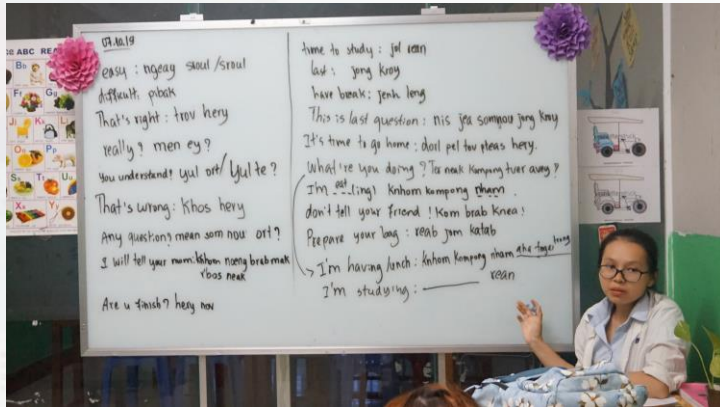 07.10.19
easy : ngeay sroul /sroul
difficult: pibak
That's right : trov hery
really? men ey?
You understand? yul ort/ Yul te?
That's wrong : Khos hery
Any question? mean som nou ort?
I will tell your mom: Knhom noeng brab mak
rbos neak
Are u finish? hery nov
time to study : jol rean
last : jong kroy
have break : jenh leng
This is last question : nis jea somnou jong kroy
It's time to go home : dorl pel tov pteas hery.
What're you doing ? Ter neak kompung tver avey ?
I'm eat (ing) Knhom kompong nham .
don't tell your friend ! Kom brab knea !
Prepare your bag : reab jom katab
I'm having lunch : Knhom kompong nham
I'm studying : rean
ABC
Bb
Ff
Gg
Ji
Kk
Oo
Pp
Ss
Tt
Xx
Yy